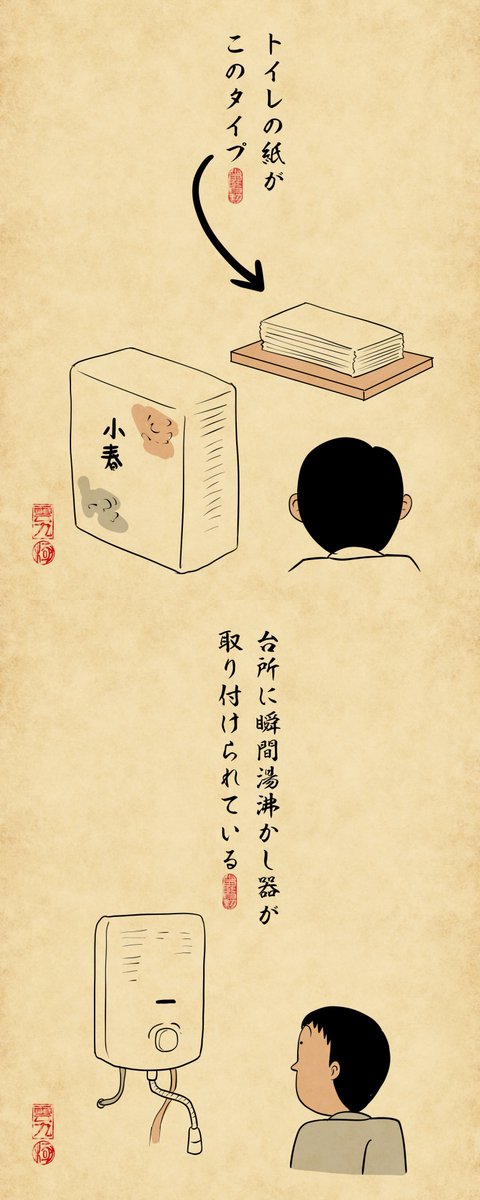 トイレの紙が
このタイプ
小春
台所に瞬間湯沸かし器が
取り付けられている